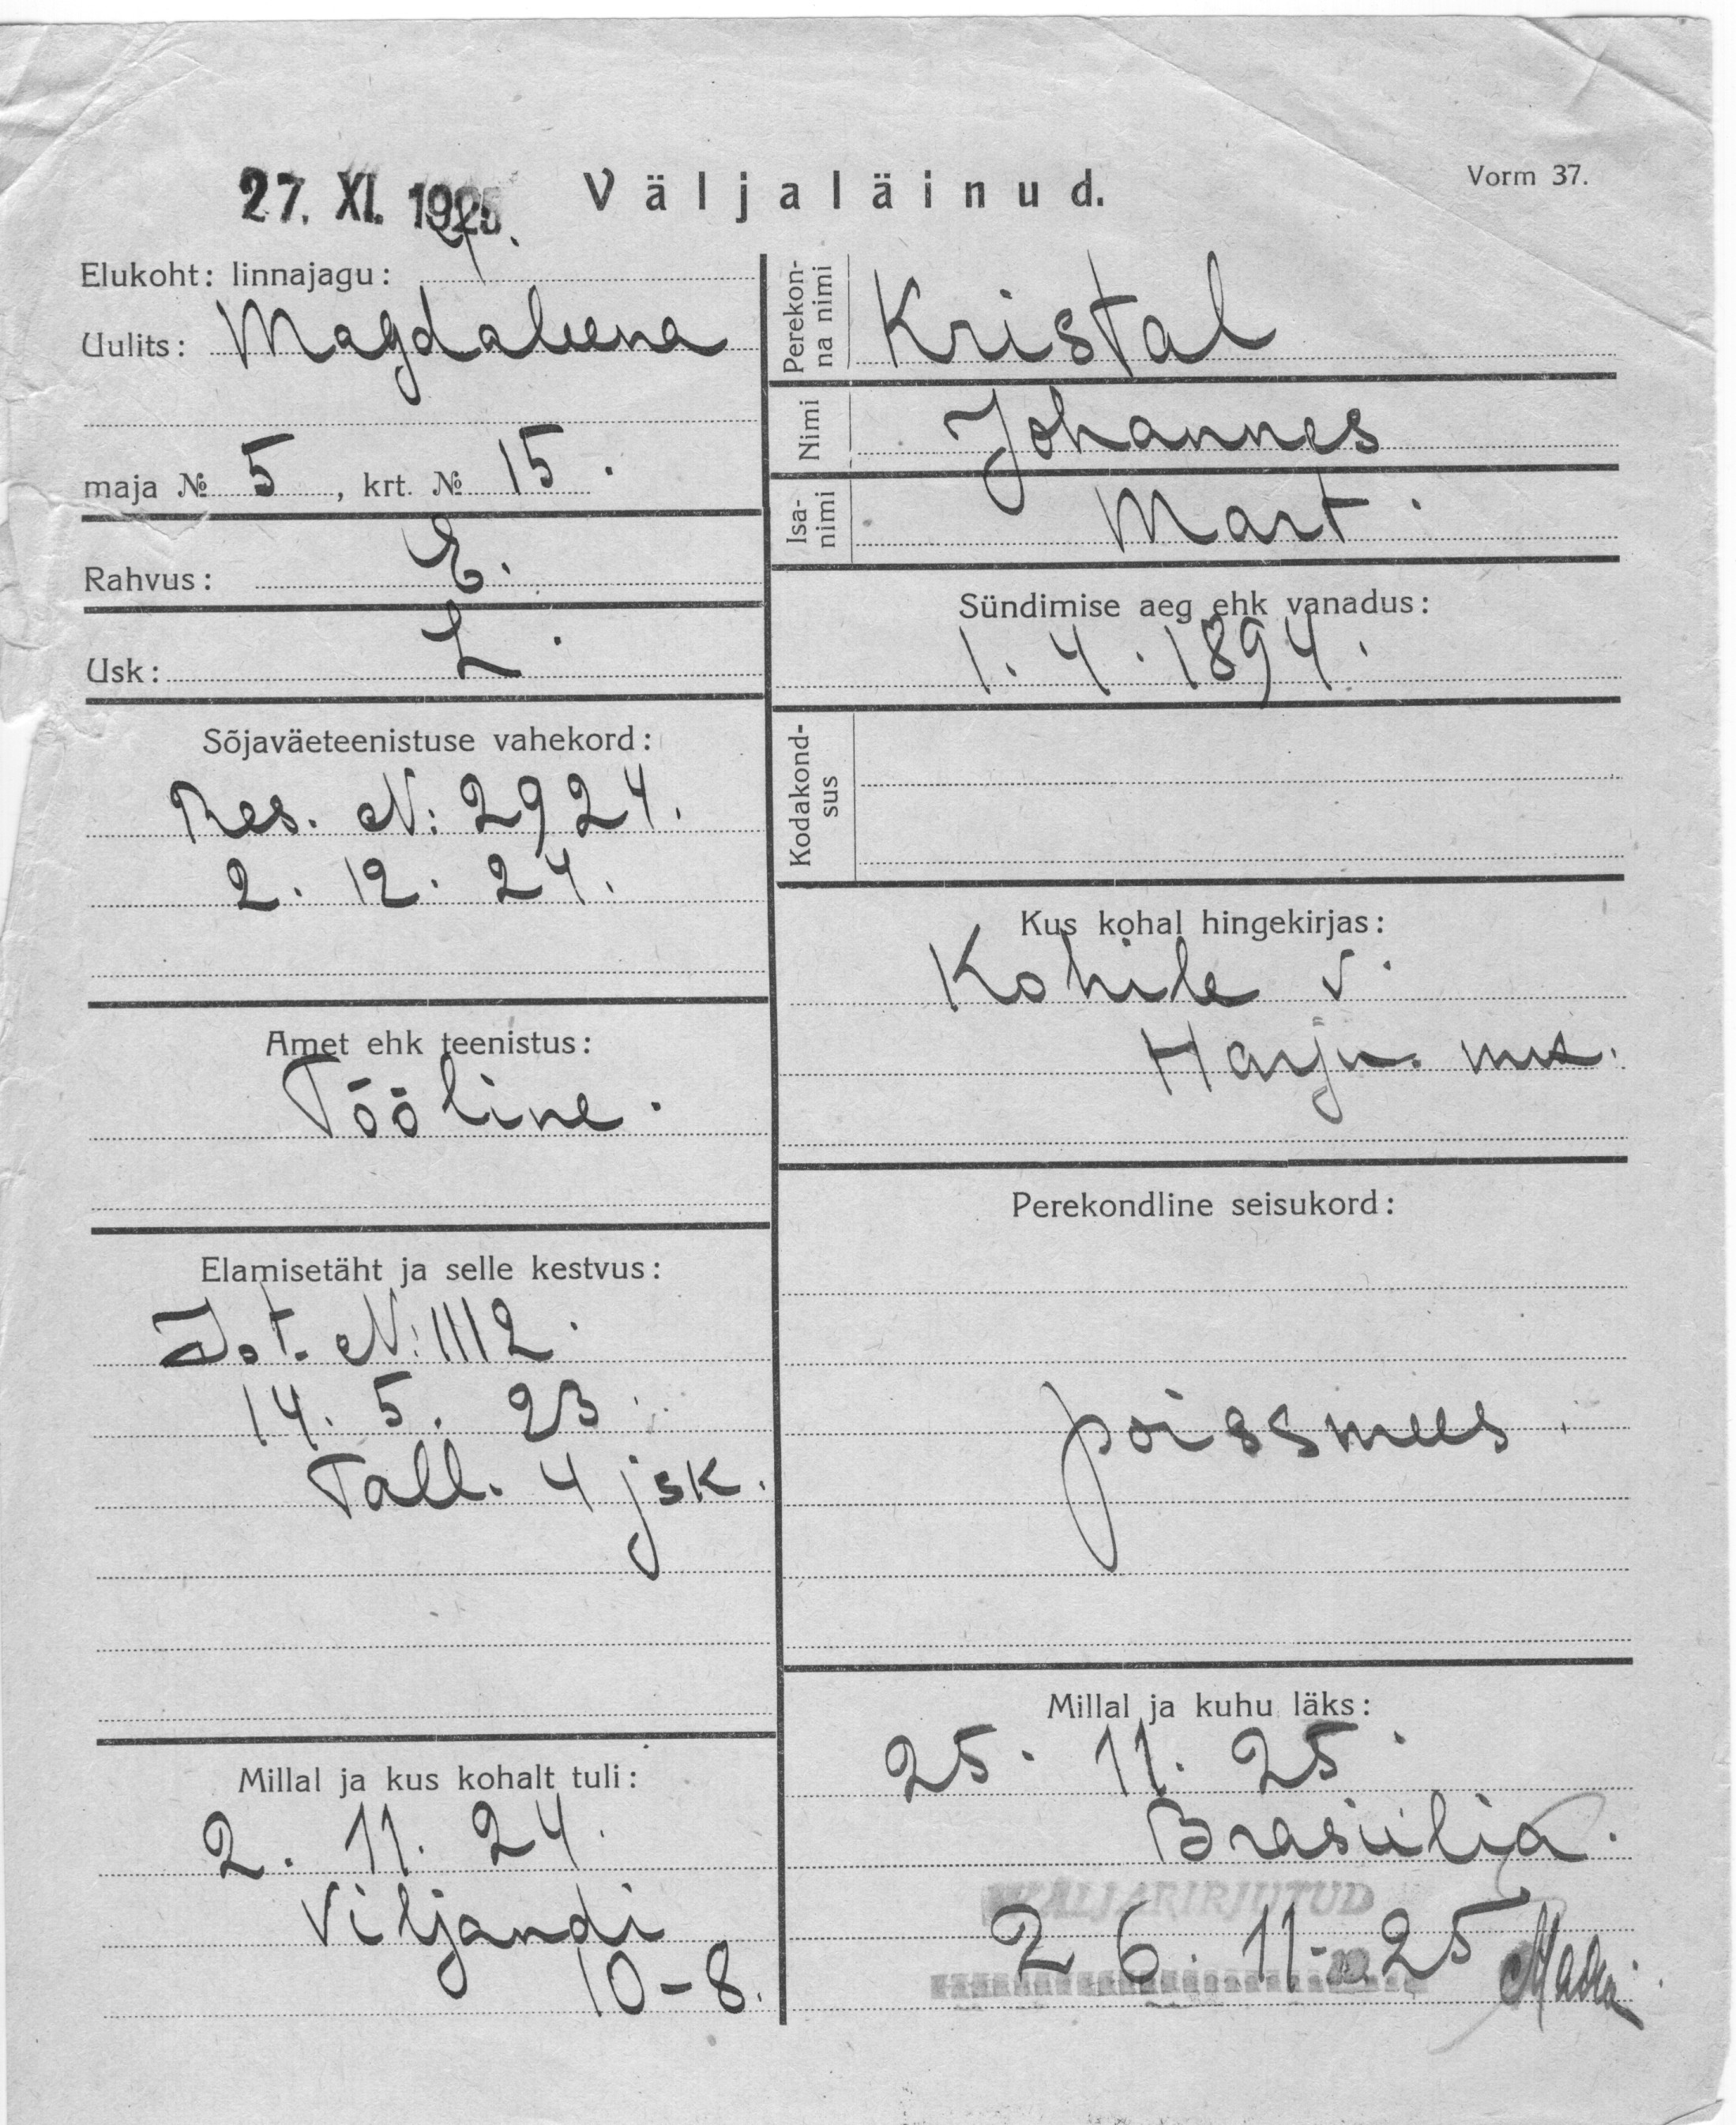 27. XI. 1925. Väljaläinud. Vorm 37.
Elukoht: linnajagu: 4.
Uulits: Magdaleena
maja № 5, krt. № 15.
Rahvus: E.
Usk: L.
Sõjaväeteenistuse vahekord:
Res. N: 2924.
2. 12. 24.
Amet ehk teenistus:
Tööline.
Elamisetäht ja selle kestvus:
N: 1112.
14. 5. 23
Tall. 4 jsk.
Millal ja kus kohalt tuli:
2. 11. 24.
Viljandi
10-8.
Perekonna nimi Kristal
Nimi Johannes
Isanimi Mart.
Sündimise aeg ehk vanadus:
1. 4. 1894.
Kodakondsus
Kus kohal hingekirjas:
Kohile v.
Harju. mk.
Perekondline seisukord:
poissmees.
Millal ja kuhu läks:
25. 11. 25.
Brasiilia.
VÄLJAKIRJUTUD
26. 11. 25